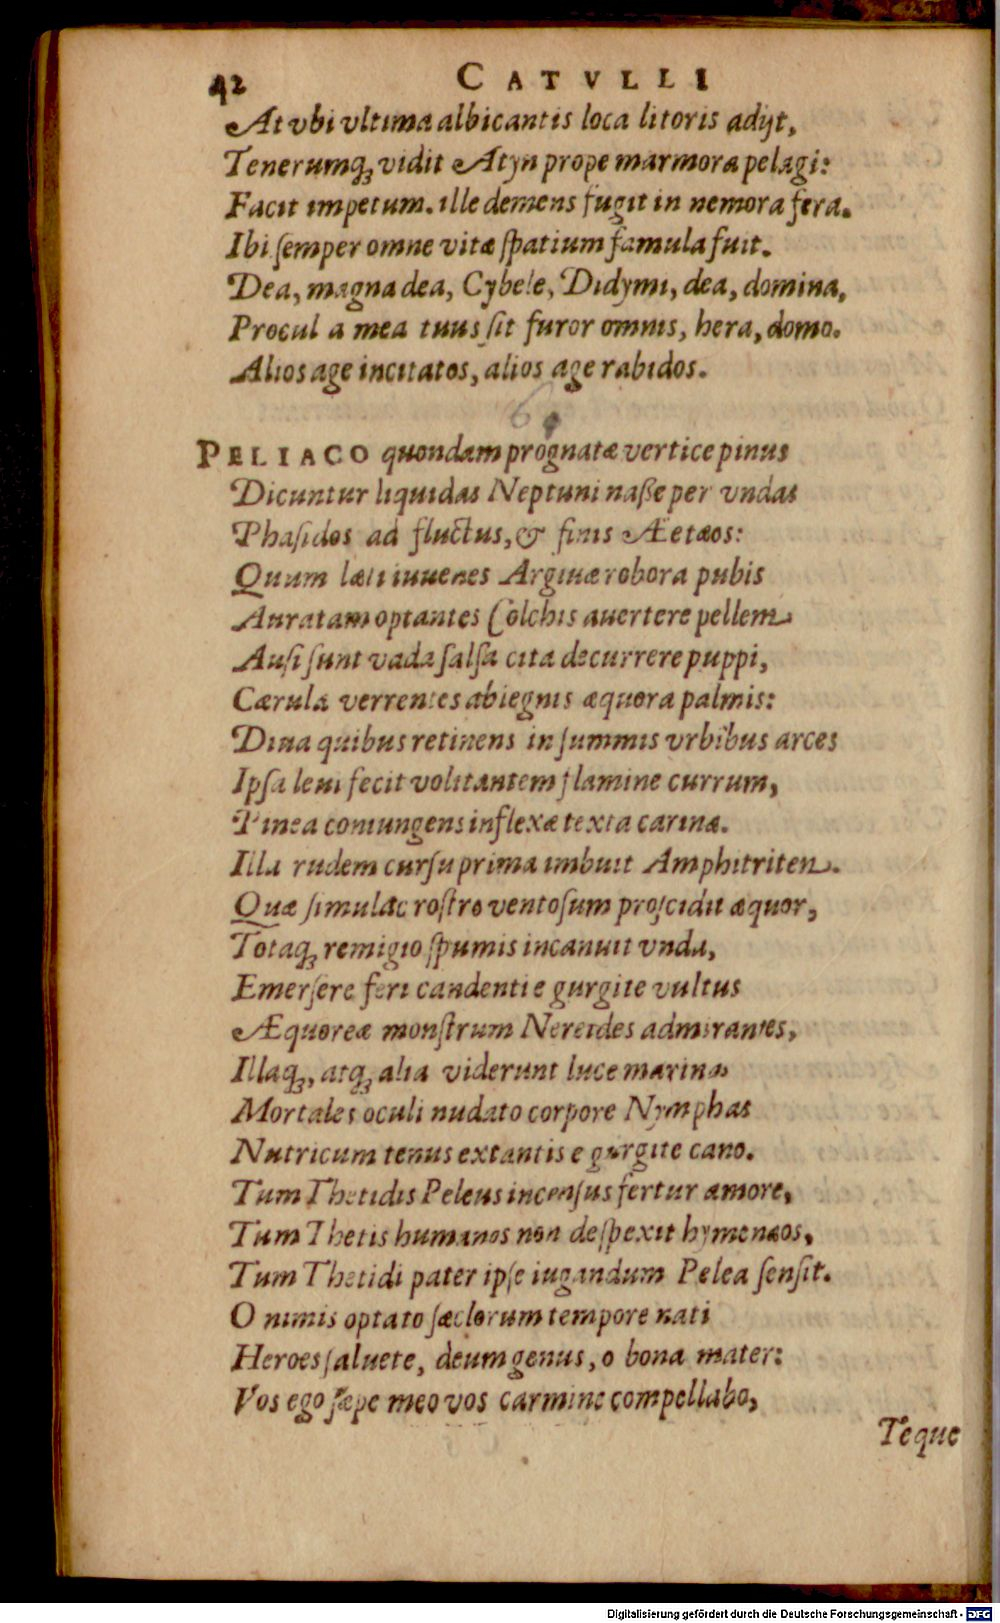 42 CATVLLI
At vbi vltima albicantis loca litoris adijt,
Tenerumq́ꝫ vidit Atyn prope marmora pelagi:
Facit impetum. ille demens fugit in nemora fera.
Ibi ſemper omne vitæ ſpatium famula fuit.
Dea, magna dea, Cybele, Didymi, dea, domina,
Procul a mea tuus ſit furor omnis, hera, domo.
Alios age incitatos, alios age rabidos.
PELIACO quondam prognatæ vertice pinus
Dicuntur liquidas Neptuni naße per vndas
Phaſidos ad fluctus, & finis Æetæos:
Quum læti iuuenes Argiuæ robora pubis
Auratam optantes Colchis auertere pellem
Auſi ſunt vada ſalſa cita decurrere puppi,
Cærula verrentes abiegnis æquora palmis:
Diua quibus retinens in ſummis vrbibus arces
Ipſa leui fecit volitantem flamine currum,
Pinea coniungens inflexæ texta carinæ.
Illa rudem curſu prima imbuit Amphitriten.
Quæ ſimulac roſtro ventoſum proſcidit æquor,
Totaqꝫ remigio ſpumis incanuit vnda,
Emerſere feri candenti e gurgite vultus
Æquoreæ monſtrum Nereides admirantes,
Illaqꝫ, atqꝫ alia viderunt luce marinas
Mortales oculi nudato corpore Nymphas
Nutricum tenus extantis e gurgite cano.
Tum Thetidis Peleus incenſus fertur amore,
Tum Thetis humanos non deſpexit hymenæos,
Tum Thetidi pater ipſe iugandum Pelea ſenſit.
O nimis optato ſæclorum tempore nati
Heroes ſaluete, deum genus, o bona mater:
Vos ego ſæpe meo vos carmine compellabo,
Teque
Digitalisierung gefördert durch die Deutsche Forschungsgemeinschaft - DFG